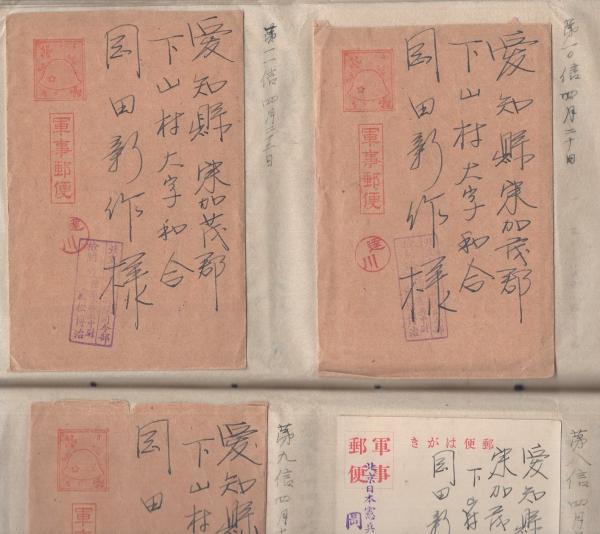 愛知縣東加茂郡
下山村大字和合
岡田新作様
軍事郵便
第一一信 四月二三日
愛知縣東加茂郡
下山村大字和合
岡田新作様
軍事郵便
第一〇信 四月二十日
愛知縣
下山村
岡田
軍事
第九信 四月
郵便はがき
軍事郵便
愛知縣
東加茂
下山
岡田新
北京日本憲兵
岡
第八信 四月